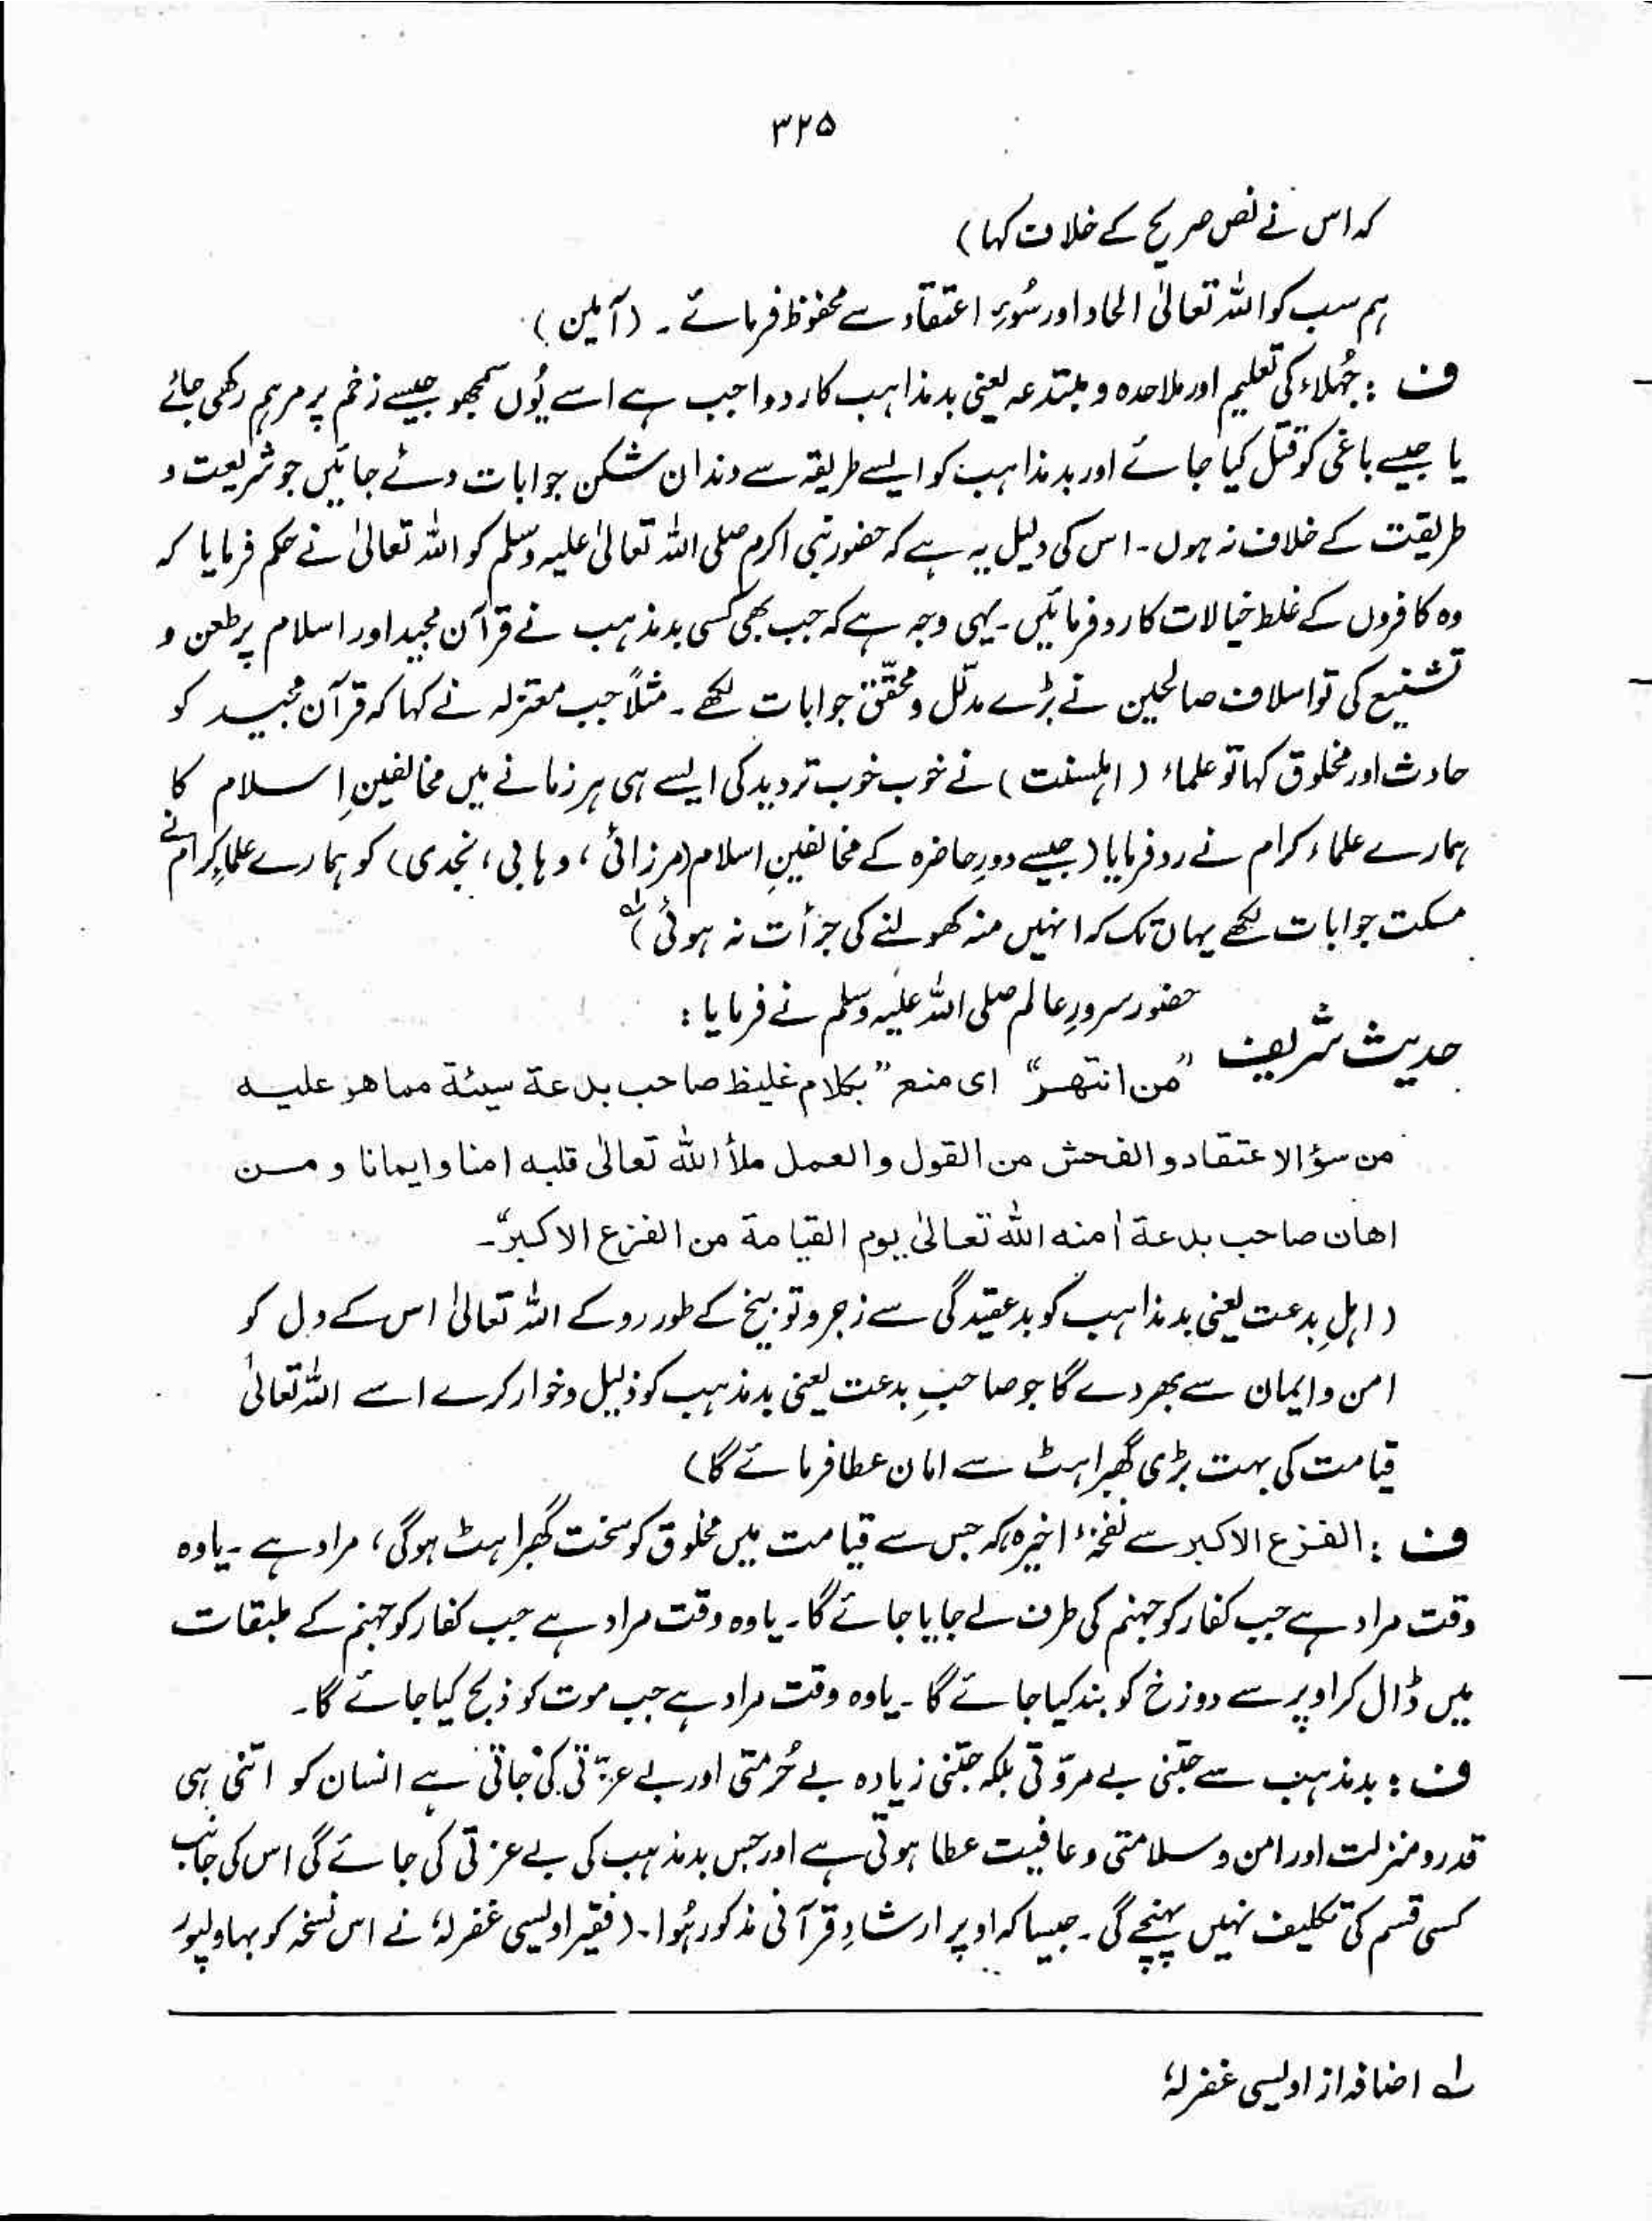 ۳۲۵
کہ اس نے نص صریح کے خلاف کہا)
ہم سب کو اللہ تعالیٰ الحاد اور سُوءِ اعتقاد سے محفوظ فرمائے۔ (آمین)
ف : جُہلاء کی تعلیم اور ملاحدہ و مبتدعہ یعنی بدمذاہب کا رد واجب ہے اسے یُوں سمجھو جیسے زخم پر مرہم رکھی جائے
یا جیسے باغی کو قتل کیا جائے اور بدمذاہب کو ایسے طریقہ سے دندان شکن جوابات دئے جائیں جو شریعت و
طریقت کے خلاف نہ ہوں۔ اس کی دلیل یہ ہے کہ حضور نبی اکرم صلی اللہ تعالیٰ علیہ وسلم کو اللہ تعالیٰ نے حکم فرمایا کہ
وہ کافروں کے غلط خیالات کا رد فرمائیں۔ یہی وجہ ہے کہ جب بھی کسی بدمذہب نے قرآن مجید اور اسلام پر طعن و
تشنیع کی تو اسلاف صالحین نے بڑے مدلّل و محقّق جوابات لکھے۔ مثلاً جب معتزلہ نے کہا کہ قرآن مجید کو
حادث اور مخلوق کہا تو علماء (اہلسنت) نے خوب خوب تردید کی ایسے ہی ہر زمانے میں مخالفینِ اسلام کا
ہمارے علماء کرام نے رد فرمایا (جیسے دورِ حاضرہ کے مخالفینِ اسلام (مرزائی ، وہابی ، نجدی) کو ہمارے علماءِ کرام نے
مسکت جوابات لکھے یہاں تک کہ انہیں منہ کھولنے کی جرأت نہ ہوئی) لہ
حضور سرورِ عالم صلی اللہ علیہ وسلم نے فرمایا :
حدیث شریف "من انتھر" ای منع "بکلام غلیظ صاحب بدعة سیئة مما ھو علیہ
من سؤ الاعتقاد و الفحش من القول و العمل ملأ اللہ تعالیٰ قلبہ امنا و ایمانا و من
اھان صاحب بدعة اٰمنہ اللہ تعالیٰ یوم القیامة من الفزع الاکبر"۔
( اہلِ بدعت یعنی بدمذاہب کو بدعقیدگی سے زجر و توبیخ کے طور روکے اللہ تعالیٰ اس کے دل کو
امن و ایمان سے بھر دے گا جو صاحبِ بدعت یعنی بدمذہب کو ذلیل و خوار کرے اسے اللہ تعالیٰ
قیامت کی بہت بڑی گھبراہٹ سے امان عطا فرمائے گا)
ف : الفزع الاکبر سے نفخۂ اخیرہ کہ جس سے قیامت میں مخلوق کو سخت گھبراہٹ ہوگی ، مراد ہے۔ یا وہ
وقت مراد ہے جب کفار کو جہنم کی طرف لے جایا جائے گا۔ یا وہ وقت مراد ہے جب کفار کو جہنم کے طبقات
میں ڈال کر اوپر سے دوزخ کو بند کیا جائے گا۔ یا وہ وقت مراد ہے جب موت کو ذبح کیا جائے گا۔
ف : بدمذہب سے جتنی بے مروّتی بلکہ جتنی زیادہ بے حُرمتی اور بے عزّتی کی جاتی ہے انسان کو اتنی ہی
قدر و منزلت اور امن و سلامتی و عافیت عطا ہوتی ہے اور جس بدمذہب کی بے عزتی کی جائے گی اس کی جانب
کسی قسم کی تکلیف نہیں پہنچے گی۔ جیسا کہ اوپر ارشادِ قرآنی مذکور ہُوا۔ (فقیر اویسی غفرلہٗ نے اس نسخہ کو بہاولپور
لہ اضافہ از اویسی غفرلہٗ